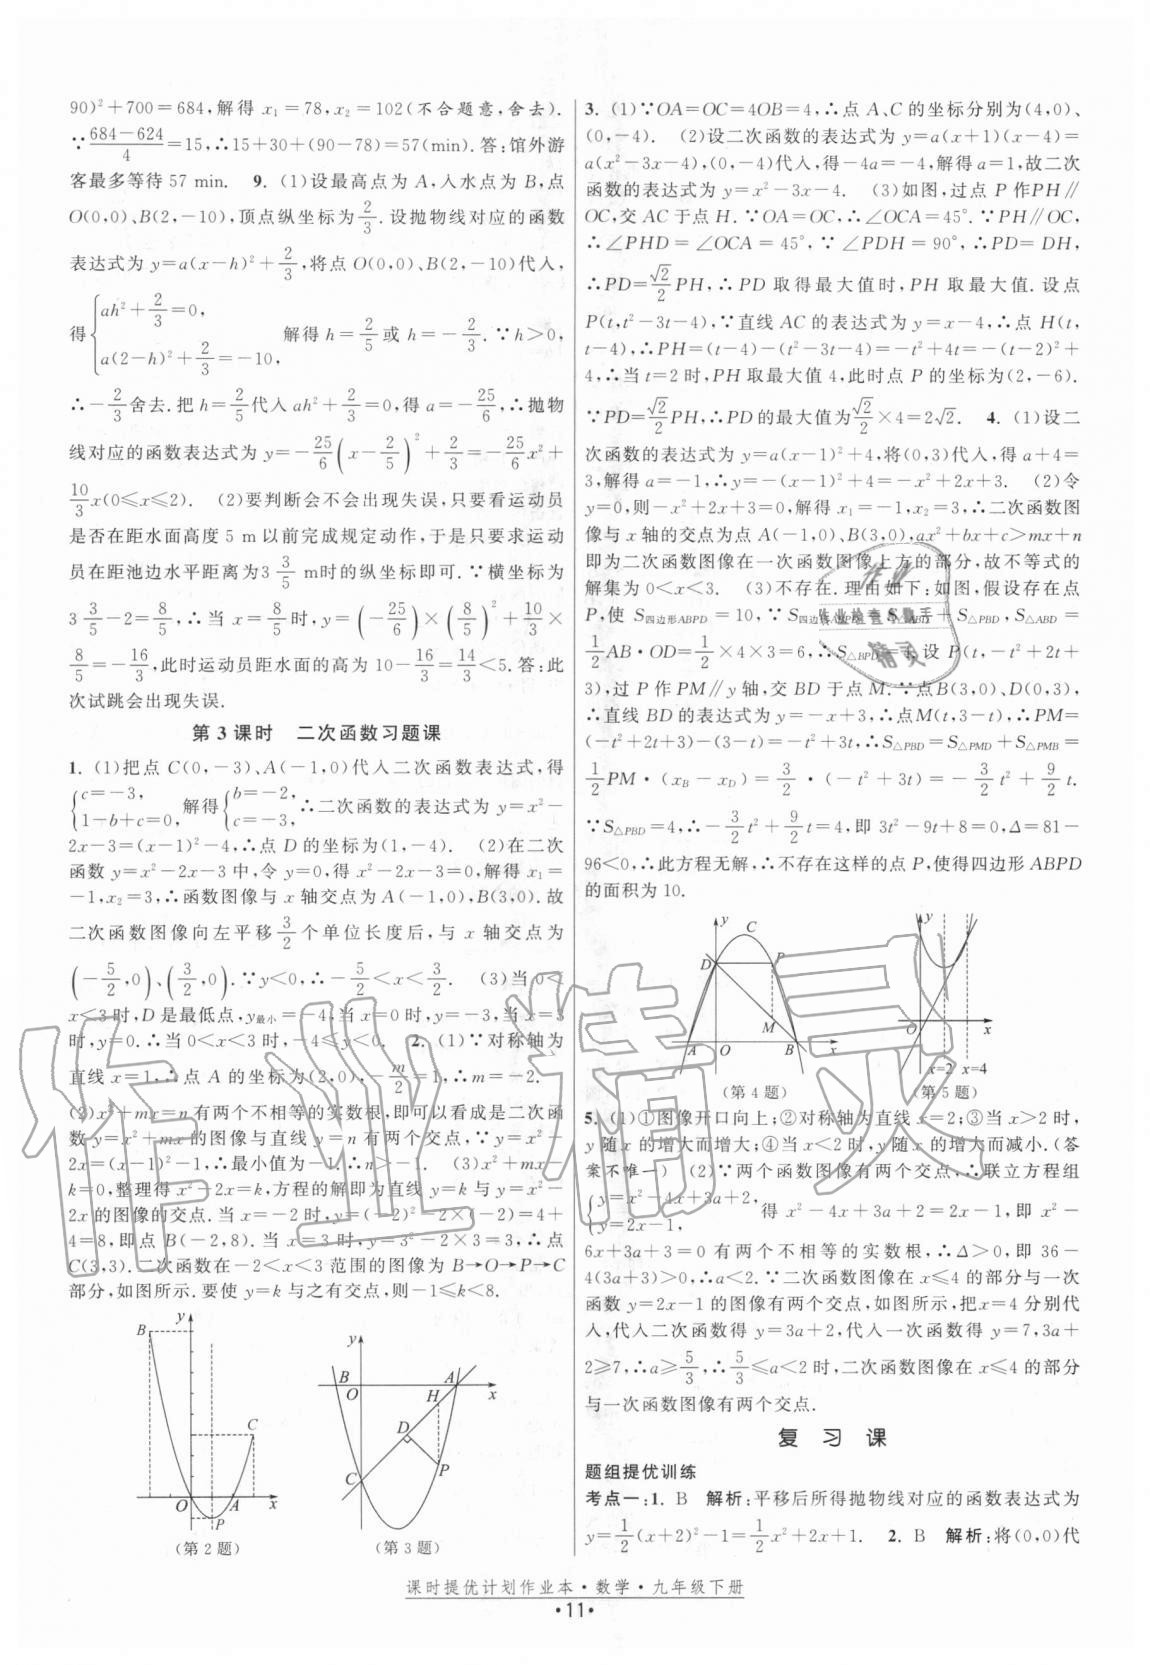 90)²+700=684,解得 x₁=78,x₂=102(不合题意,舍去).
∵(684-624)/4=15,∴15+30+(90-78)=57(min).答:馆外游
客最多等待 57 min. 9. (1)设最高点为 A,入水点为 B,点
O(0,0)、B(2,-10),顶点纵坐标为2/3.设抛物线对应的函数
表达式为 y=a(x-h)²+2/3,将点 O(0,0)、B(2,-10)代入,
得{ah²+2/3=0, a(2-h)²+2/3=-10, 解得 h=2/5或 h=-2/3.∵h>0,
∴-2/3舍去.把 h=2/5代入 ah²+2/3=0,得 a=-25/6,∴抛物
线对应的函数表达式为 y=-25/6(x-2/5)²+2/3=-25/6x²+
10/3x(0≤x≤2). (2)要判断会不会出现失误,只要看运动员
是否在距水面高度 5 m 以前完成规定动作,于是只要求运动
员在距池边水平距离为3 3/5 m时的纵坐标即可.∵横坐标为
3 3/5-2=8/5,∴当 x=8/5时,y=(-25/6)×(8/5)²+10/3×
8/5=-16/3,此时运动员距水面的高为 10-16/3=14/3<5.答:此
次试跳会出现失误.
第 3 课时 二次函数习题课
1. (1)把点 C(0,-3)、A(-1,0)代入二次函数表达式,得
{c=-3, 1-b+c=0, 解得{b=-2, c=-3, ∴二次函数的表达式为 y=x²-
2x-3=(x-1)²-4,∴点 D 的坐标为(1,-4). (2)在二次
函数 y=x²-2x-3 中,令 y=0,得 x²-2x-3=0,解得 x₁=
-1,x₂=3,∴函数图像与 x 轴交点为A(-1,0),B(3,0).故
二次函数图像向左平移3/2个单位长度后,与 x 轴交点为
(-5/2,0)、(3/2,0).∵y<0,∴-5/2<x<3/2. (3)当 0<
x<3 时,D 是最低点,y最小=-4,当 x=0时,y=-3,当 x=3
时,y=0.∴当 0<x<3 时,-4≤y<0. 2. (1)∵对称轴为
直线 x=1,∴点 A 的坐标为(2,0),-m/2=1,∴m=-2.
(2)x²+mx=n 有两个不相等的实数根,即可以看成是二次函
数 y=x²+mx 的图像与直线 y=n 有两个交点,∵y=x²-
2x=(x-1)²-1,∴最小值为-1,∴n>-1. (3)x²+mx-
k=0,整理得 x²-2x=k,方程的解即为直线 y=k 与 y=x²-
2x 的图像的交点.当 x=-2 时,y=(-2)²-2×(-2)=4+
4=8,即点 B(-2,8).当 x=3 时,y=3²-2×3=3,∴点
C(3,3).二次函数在-2<x<3 范围的图像为 B→O→P→C
部分,如图所示.要使 y=k 与之有交点,则-1≤k<8.
y
B
C
O
A
x
P
(第 2 题)
y
B
O
A
H
x
D
C
P
(第 3 题)
3. (1)∵OA=OC=4OB=4,∴点 A、C 的坐标分别为(4,0)、
(0,-4). (2)设二次函数的表达式为 y=a(x+1)(x-4)=
a(x²-3x-4),(0,-4)代入,得-4a=-4,解得 a=1,故二次
函数的表达式为 y=x²-3x-4. (3)如图,过点 P 作PH∥
OC,交 AC 于点 H.∵OA=OC,∴∠OCA=45°.∵PH∥OC,
∴∠PHD=∠OCA=45°,∵∠PDH=90°,∴PD=DH,
∴PD=√2/2PH,∴PD 取得最大值时,PH 取最大值.设点
P(t,t²-3t-4),∵直线 AC 的表达式为 y=x-4,∴点 H(t,
t-4),∴PH=(t-4)-(t²-3t-4)=-t²+4t=-(t-2)²+
4,∴当 t=2 时,PH 取最大值 4,此时点 P 的坐标为(2,-6).
∵PD=√2/2PH,∴PD 的最大值为√2/2×4=2√2. 4. (1)设二
次函数的表达式为 y=a(x-1)²+4,将(0,3)代入,得 a+4=
3,解得 a=-1,∴y=-(x-1)²+4=-x²+2x+3. (2)令
y=0,则-x²+2x+3=0,解得 x₁=-1,x₂=3,∴二次函数图
像与 x 轴的交点为点 A(-1,0)、B(3,0),ax²+bx+c>mx+n
即为二次函数图像在一次函数图像上方的部分,故不等式的
解集为 0<x<3. (3)不存在.理由如下:如图,假设存在点
P,使 S四边形ABPD=10,∵S四边形ABPD=S△ABD+S△PBD,S△ABD=
1/2AB·OD=1/2×4×3=6,∴S△BPD=4,设 P(t,-t²+2t+
3),过 P 作 PM∥y 轴,交 BD 于点 M.∵点B(3,0)、D(0,3),
∴直线 BD 的表达式为 y=-x+3,∴点M(t,3-t),∴PM=
(-t²+2t+3)-(3-t)=-t²+3t,∴S△PBD=S△PMD+S△PMB=
1/2PM·(x_B-x_D)=3/2·(-t²+3t)=-3/2t²+9/2t.
∵S△PBD=4,∴-3/2t²+9/2t=4,即 3t²-9t+8=0,Δ=81-
96<0,∴此方程无解,∴不存在这样的点 P,使得四边形 ABPD
的面积为 10.
y
C
D
P
M
A
O
B
x
(第 4 题)
y
O
x
x=2
x=4
(第 5 题)
5. (1)①图像开口向上;②对称轴为直线 x=2;③当 x>2 时,
y 随 x 的增大而增大;④当 x<2 时,y 随 x 的增大而减小.(答
案不唯一) (2)∵两个函数图像有两个交点,∴联立方程组
{y=x²-4x+3a+2, y=2x-1, 得 x²-4x+3a+2=2x-1,即 x²-
6x+3a+3=0 有两个不相等的实数根,∴Δ>0,即 36-
4(3a+3)>0,∴a<2.∵二次函数图像在 x≤4 的部分与一次
函数 y=2x-1 的图像有两个交点,如图所示,把x=4 分别代
入,代入二次函数得 y=3a+2,代入一次函数得 y=7,3a+
2≥7,∴a≥5/3,∴5/3≤a<2 时,二次函数图像在 x≤4 的部分
与一次函数图像有两个交点.
复 习 课
题组提优训练
考点一:1. B 解析:平移后所得抛物线对应的函数表达式为
y=1/2(x+2)²-1=1/2x²+2x+1. 2. B 解析:将(0,0)代
课时提优计划作业本·数学·九年级下册
·11·
作业精灵